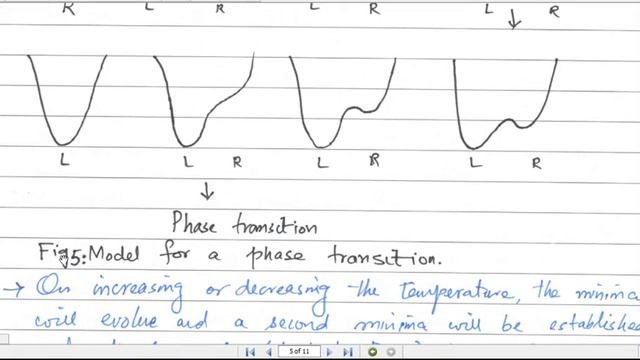 R L R L R L R
L L R L R L R
Phase transition
Fig5: Model for a phase transition.
→ On increasing or decreasing the temperature, the minima
will evolve and a second minima will be established
5 of 11